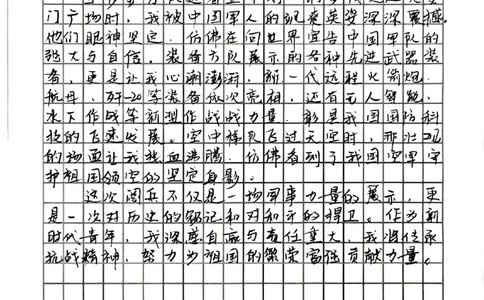 门广场时，我被中国军人的飒爽英姿深深震撼。
他们眼神坚定，仿佛在向世界宣告中国军队的
强大与自信。装备方队展示的各种先进武器装
备，更是让我心潮澎湃，新一代远程火箭炮、
航母、歼-20等装备依次亮相，还有无人智能、
水下作战等新型作战力量，彰显我国国防科
技的飞速发展。空中梯队飞过天空时，那壮观
的场面让我热血沸腾，仿佛看到了我国空军守
护祖国领空的坚定身影。
这次阅兵不仅是一场军事力量的展示，更
是一次对历史的铭记和对和平的捍卫。作为新
时代青年，我深感自豪与责任重大，我将传承
抗战精神，努力为祖国的繁荣富强贡献力量。